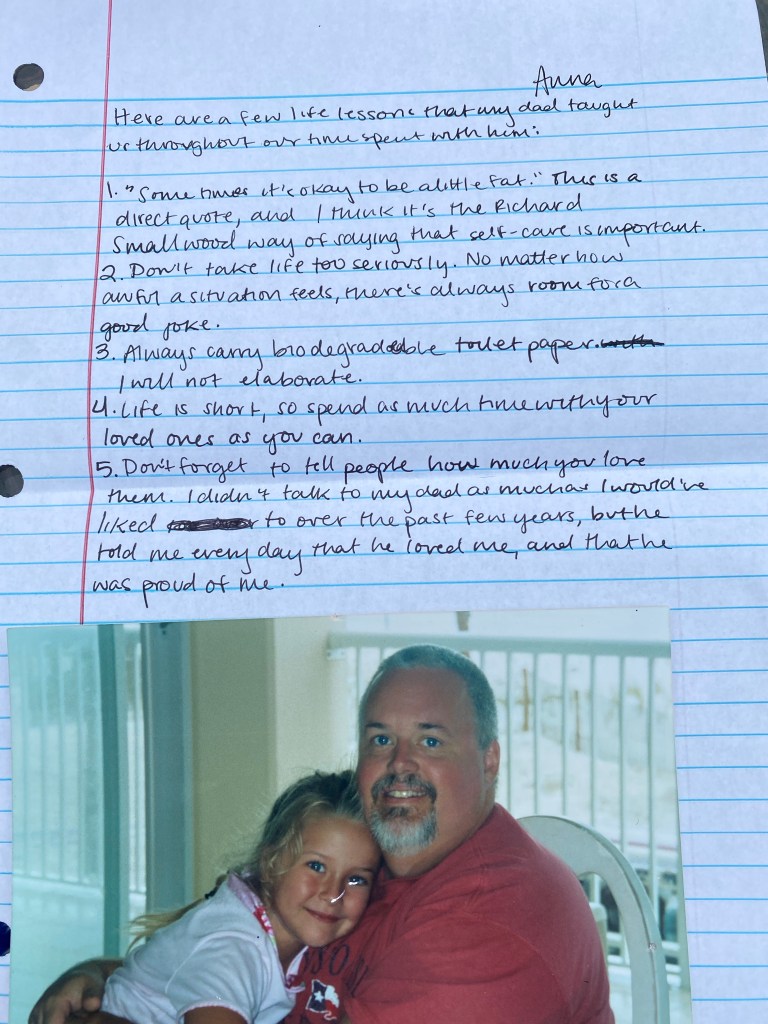 Anna
Here are a few life lessons that my dad taught
us throughout our time spent with him:
1. "Sometimes it's okay to be a little fat." This is a
direct quote, and I think it's the Richard
Smallwood way of saying that self-care is important.
2. Don't take life too seriously. No matter how
awful a situation feels, there's always room for a
good joke.
3. Always carry biodegradable toilet paper.
I will not elaborate.
4. Life is short, so spend as much time with your
loved ones as you can.
5. Don't forget to tell people how much you love
them. I didn't talk to my dad as much as I would've
liked to over the past few years, but he
told me every day that he loved me, and that he
was proud of me.